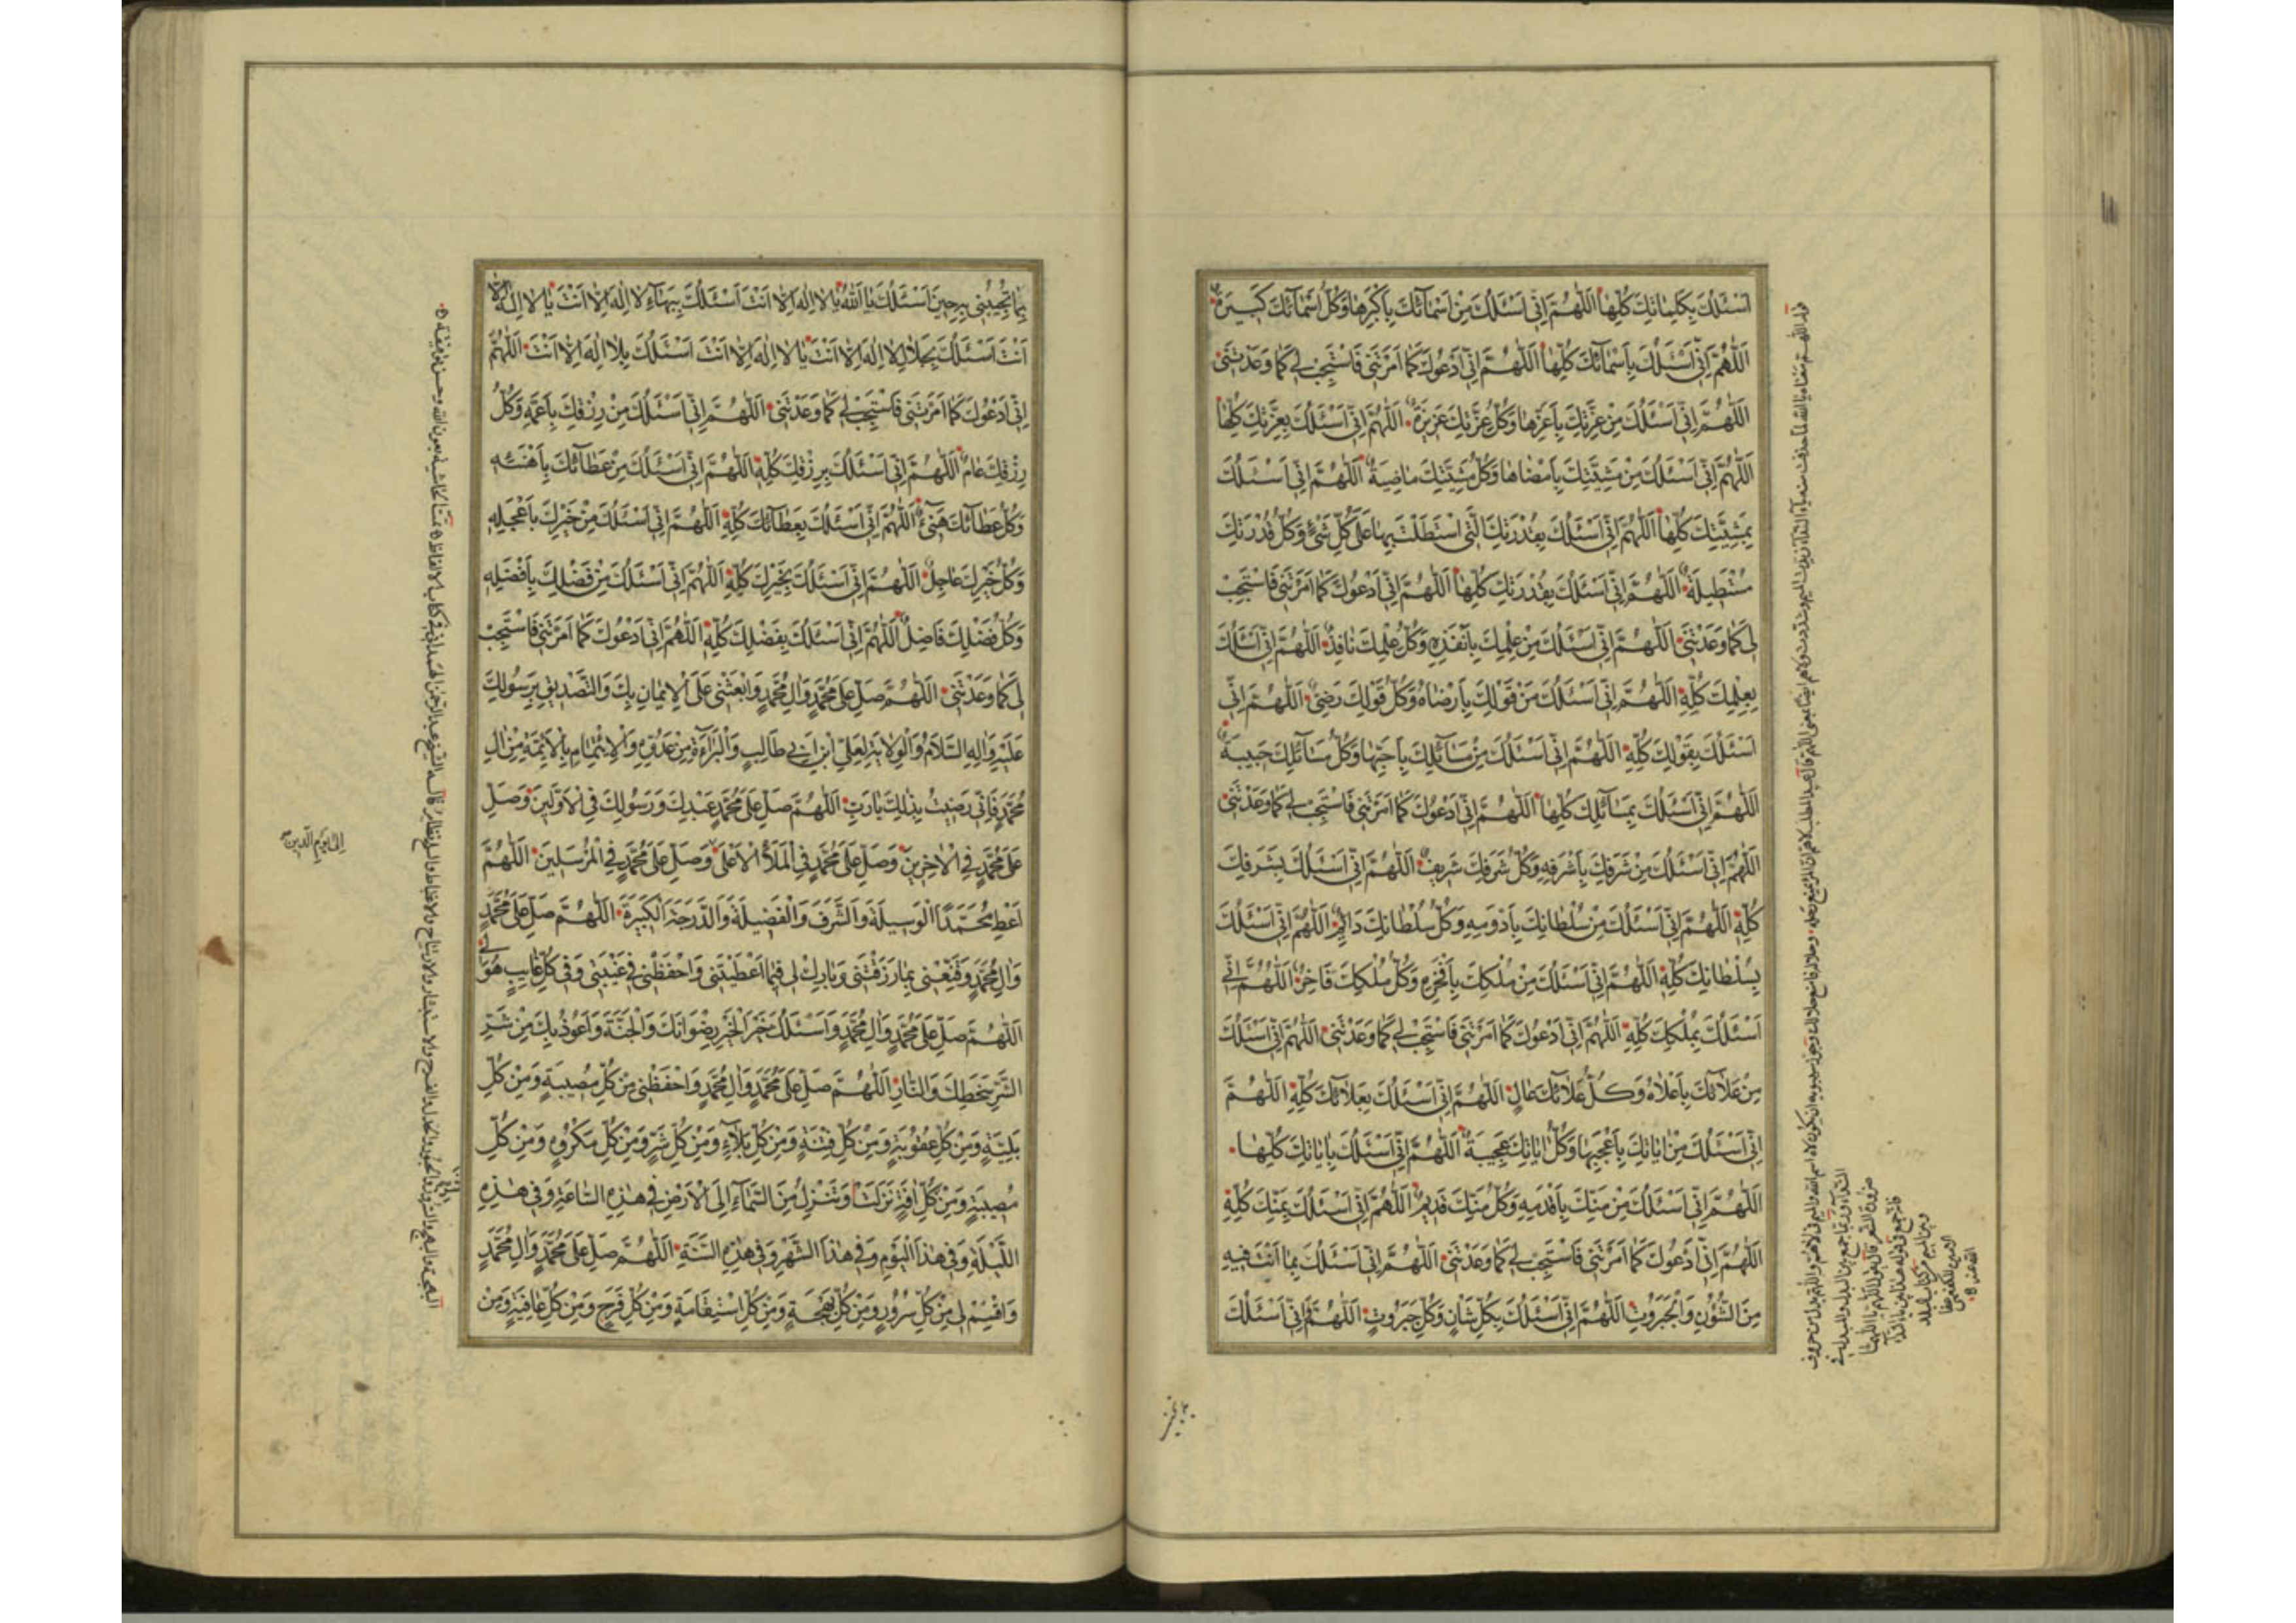 اَسْئَلُكَ بِكَلِمَاتِكَ كُلِّهَا اَللّٰهُمَّ اِنّى اَسْئَلُكَ مِنْ اَسْمَآئِكَ بِاَكْبَرِهَا وَكُلُّ اَسْمَآئِكَ كَبيرَةٌ
اَللّٰهُمَّ اِنّى اَسْئَلُكَ بِاَسْمَآئِكَ كُلِّهَا اَللّٰهُمَّ اِنّى اَدْعُوكَ كَمَا اَمَرْتَنى فَاسْتَجِبْ لى كَمَا وَعَدْتَنى
اَللّٰهُمَّ اِنّى اَسْئَلُكَ مِنْ عِزَّتِكَ بِاَعَزِّهَا وَكُلُّ عِزَّتِكَ عَزيزَةٌ اَللّٰهُمَّ اِنّى اَسْئَلُكَ بِعِزَّتِكَ كُلِّهَا
اَللّٰهُمَّ اِنّى اَسْئَلُكَ مِنْ مَشِيَّتِكَ بِاَمْضَاهَا وَكُلُّ مَشِيَّتِكَ مَاضِيَةٌ اَللّٰهُمَّ اِنّى اَسْئَلُكَ
بِمَشِيَّتِكَ كُلِّهَا اَللّٰهُمَّ اِنّى اَسْئَلُكَ بِقُدْرَتِكَ الَّتى اسْتَطَلْتَ بِهَا عَلٰى كُلِّ شَىْءٍ وَكُلُّ قُدْرَتِكَ
مُسْتَطيلَةٌ اَللّٰهُمَّ اِنّى اَسْئَلُكَ بِقُدْرَتِكَ كُلِّهَا اَللّٰهُمَّ اِنّى اَدْعُوكَ كَمَا اَمَرْتَنى فَاسْتَجِبْ
لى كَمَا وَعَدْتَنى اَللّٰهُمَّ اِنّى اَسْئَلُكَ مِنْ عِلْمِكَ بِاَنْفَذِهِ وَكُلُّ عِلْمِكَ نَافِذٌ اَللّٰهُمَّ اِنّى اَسْئَلُكَ
بِعِلْمِكَ كُلِّهِ اَللّٰهُمَّ اِنّى اَسْئَلُكَ مِنْ قَوْلِكَ بِاَرْضَاهُ وَكُلُّ قَوْلِكَ رَضِىٌّ اَللّٰهُمَّ اِنّى
اَسْئَلُكَ بِقَوْلِكَ كُلِّهِ اَللّٰهُمَّ اِنّى اَسْئَلُكَ مِنْ مَسَآئِلِكَ بِاَحَبِّهَا وَكُلُّ مَسَآئِلِكَ حَبيبَةٌ
اَللّٰهُمَّ اِنّى اَسْئَلُكَ بِمَسَآئِلِكَ كُلِّهَا اَللّٰهُمَّ اِنّى اَدْعُوكَ كَمَا اَمَرْتَنى فَاسْتَجِبْ لى كَمَا وَعَدْتَنى
اَللّٰهُمَّ اِنّى اَسْئَلُكَ مِنْ شَرَفِكَ بِاَشْرَفِهِ وَكُلُّ شَرَفِكَ شَريفٌ اَللّٰهُمَّ اِنّى اَسْئَلُكَ بِشَرَفِكَ
كُلِّهِ اَللّٰهُمَّ اِنّى اَسْئَلُكَ مِنْ سُلْطَانِكَ بِاَدْوَمِهِ وَكُلُّ سُلْطَانِكَ دَآئِمٌ اَللّٰهُمَّ اِنّى اَسْئَلُكَ
بِسُلْطَانِكَ كُلِّهِ اَللّٰهُمَّ اِنّى اَسْئَلُكَ مِنْ مُلْكِكَ بِاَفْخَرِهِ وَكُلُّ مُلْكِكَ فَاخِرٌ اَللّٰهُمَّ اِنّى
اَسْئَلُكَ بِمُلْكِكَ كُلِّهِ اَللّٰهُمَّ اِنّى اَدْعُوكَ كَمَا اَمَرْتَنى فَاسْتَجِبْ لى كَمَا وَعَدْتَنى اَللّٰهُمَّ اِنّى اَسْئَلُكَ
مِنْ عَلَآئِكَ بِاَعْلَاهُ وَكُلُّ عَلَآئِكَ عَالٍ اَللّٰهُمَّ اِنّى اَسْئَلُكَ بِعَلَآئِكَ كُلِّهِ اَللّٰهُمَّ
اِنّى اَسْئَلُكَ مِنْ اٰيَاتِكَ بِاَعْجَبِهَا وَكُلُّ اٰيَاتِكَ عَجيبَةٌ اَللّٰهُمَّ اِنّى اَسْئَلُكَ بِاٰيَاتِكَ كُلِّهَا
اَللّٰهُمَّ اِنّى اَسْئَلُكَ مِنْ مَنِّكَ بِاَقْدَمِهِ وَكُلُّ مَنِّكَ قَديمٌ اَللّٰهُمَّ اِنّى اَسْئَلُكَ بِمَنِّكَ كُلِّهِ
اَللّٰهُمَّ اِنّى اَدْعُوكَ كَمَا اَمَرْتَنى فَاسْتَجِبْ لى كَمَا وَعَدْتَنى اَللّٰهُمَّ اِنّى اَسْئَلُكَ بِمَا اَنْتَ فيهِ
مِنَ الشُّؤُنِ وَالْجَبَرُوتِ اَللّٰهُمَّ اِنّى اَسْئَلُكَ بِكُلِّ شَاْنٍ وَكُلِّ جَبَرُوتٍ اَللّٰهُمَّ اِنّى اَسْئَلُكَ
بِمَا تُجيبُنى بِهِ حينَ اَسْئَلُكَ يَا اَللّٰهُ يَا لَا اِلٰهَ اِلَّا اَنْتَ اَسْئَلُكَ بِبَهَآءِ لَا اِلٰهَ اِلَّا اَنْتَ يَا لَا اِلٰهَ اِلَّا
اَنْتَ اَسْئَلُكَ بِجَلَالِ لَا اِلٰهَ اِلَّا اَنْتَ يَا لَا اِلٰهَ اِلَّا اَنْتَ اَسْئَلُكَ بِلَا اِلٰهَ اِلَّا اَنْتَ اَللّٰهُمَّ
اِنّى اَدْعُوكَ كَمَا اَمَرْتَنى فَاسْتَجِبْ لى كَمَا وَعَدْتَنى اَللّٰهُمَّ اِنّى اَسْئَلُكَ مِنْ رِزْقِكَ بِاَعَمِّهِ وَكُلُّ
رِزْقِكَ عَامٌّ اَللّٰهُمَّ اِنّى اَسْئَلُكَ بِرِزْقِكَ كُلِّهِ اَللّٰهُمَّ اِنّى اَسْئَلُكَ مِنْ عَطَآئِكَ بِاَهْنَئِهِ
وَكُلُّ عَطَآئِكَ هَنىءٌ اَللّٰهُمَّ اِنّى اَسْئَلُكَ بِعَطَآئِكَ كُلِّهِ اَللّٰهُمَّ اِنّى اَسْئَلُكَ مِنْ خَيْرِكَ بِاَعْجَلِهِ
وَكُلُّ خَيْرِكَ عَاجِلٌ اَللّٰهُمَّ اِنّى اَسْئَلُكَ بِخَيْرِكَ كُلِّهِ اَللّٰهُمَّ اِنّى اَسْئَلُكَ مِنْ فَضْلِكَ بِاَفْضَلِهِ
وَكُلُّ فَضْلِكَ فَاضِلٌ اَللّٰهُمَّ اِنّى اَسْئَلُكَ بِفَضْلِكَ كُلِّهِ اَللّٰهُمَّ اِنّى اَدْعُوكَ كَمَا اَمَرْتَنى فَاسْتَجِبْ
لى كَمَا وَعَدْتَنى اَللّٰهُمَّ صَلِّ عَلٰى مُحَمَّدٍ وَاٰلِ مُحَمَّدٍ وَابْعَثْنى عَلَى الْايمَانِ بِكَ وَالتَّصْديقِ بِرَسُولِكَ
عَلَيْهِ وَاٰلِهِ السَّلَامُ وَالْوِلَايَةِ لِعَلِىِّ ابْنِ اَبى طَالِبٍ وَالْبَرَآءَةِ مِنْ عَدُوِّهِ وَالْاِئْتِمَامِ بِالْاَئِمَّةِ مِنْ اٰلِ
مُحَمَّدٍ فَاِنّى رَضيتُ بِذٰلِكَ يَا رَبِّ اَللّٰهُمَّ صَلِّ عَلٰى مُحَمَّدٍ عَبْدِكَ وَرَسُولِكَ فِى الْاَوَّلينَ وَصَلِّ
عَلٰى مُحَمَّدٍ فِى الْاٰخِرينَ وَصَلِّ عَلٰى مُحَمَّدٍ فِى الْمَلَاِ الْاَعْلٰى وَصَلِّ عَلٰى مُحَمَّدٍ فِى الْمُرْسَلينَ اَللّٰهُمَّ
اَعْطِ مُحَمَّدًا الْوَسيلَةَ وَالشَّرَفَ وَالْفَضيلَةَ وَالدَّرَجَةَ الْكَبيرَةَ اَللّٰهُمَّ صَلِّ عَلٰى مُحَمَّدٍ
وَاٰلِ مُحَمَّدٍ وَقَنِّعْنى بِمَا رَزَقْتَنى وَبَارِكْ لى فيمَا اَعْطَيْتَنى وَاحْفَظْنى فى غَيْبَتى وَفى كُلِّ غَايِبٍ هُوَ لى
اَللّٰهُمَّ صَلِّ عَلٰى مُحَمَّدٍ وَاٰلِ مُحَمَّدٍ وَاَسْئَلُكَ خَيْرَ الْخَيْرِ رِضْوَانَكَ وَالْجَنَّةَ وَاَعُوذُ بِكَ مِنْ شَرِّ
الشَّرِّ سَخَطِكَ وَالنَّارِ اَللّٰهُمَّ صَلِّ عَلٰى مُحَمَّدٍ وَاٰلِ مُحَمَّدٍ وَاحْفَظْنى مِنْ كُلِّ مُصيبَةٍ وَمِنْ كُلِّ
بَلِيَّةٍ وَمِنْ كُلِّ عُقُوبَةٍ وَمِنْ كُلِّ فِتْنَةٍ وَمِنْ كُلِّ بَلَآءٍ وَمِنْ كُلِّ شَرٍّ وَمِنْ كُلِّ مَكْرُوهٍ وَمِنْ كُلِّ
مُصيبَةٍ وَمِنْ كُلِّ اٰفَةٍ نَزَلَتْ اَوْ تَنْزِلُ مِنَ السَّمَآءِ اِلَى الْاَرْضِ فى هٰذِهِ السَّاعَةِ وَفى هٰذِهِ
اللَّيْلَةِ وَفى هٰذَا الْيَوْمِ وَفى هٰذَا الشَّهْرِ وَفى هٰذِهِ السَّنَةِ اَللّٰهُمَّ صَلِّ عَلٰى مُحَمَّدٍ وَاٰلِ مُحَمَّدٍ
وَاقْسِمْ لى مِنْ كُلِّ سُرُورٍ وَمِنْ كُلِّ بَهْجَةٍ وَمِنْ كُلِّ اسْتِقَامَةٍ وَمِنْ كُلِّ فَرَجٍ وَمِنْ كُلِّ عَافِيَةٍ وَمِنْ
اِلٰى يَوْمِ الدّينِ